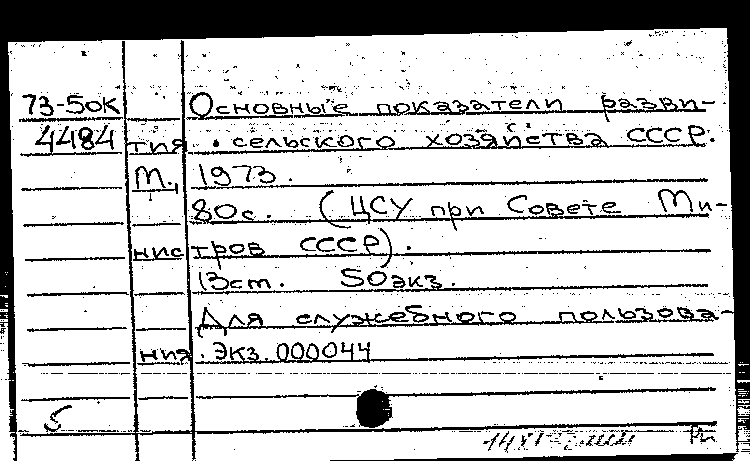 73-5ок Основные показатели разви-
4484 тия сельского хозяйства СССР.
М., 1973.
80с. (ЦСУ при Совете Ми-
нистров СССР).
13ст. 50экз.
Для служебного пользова-
ния. Экз. 000044
5